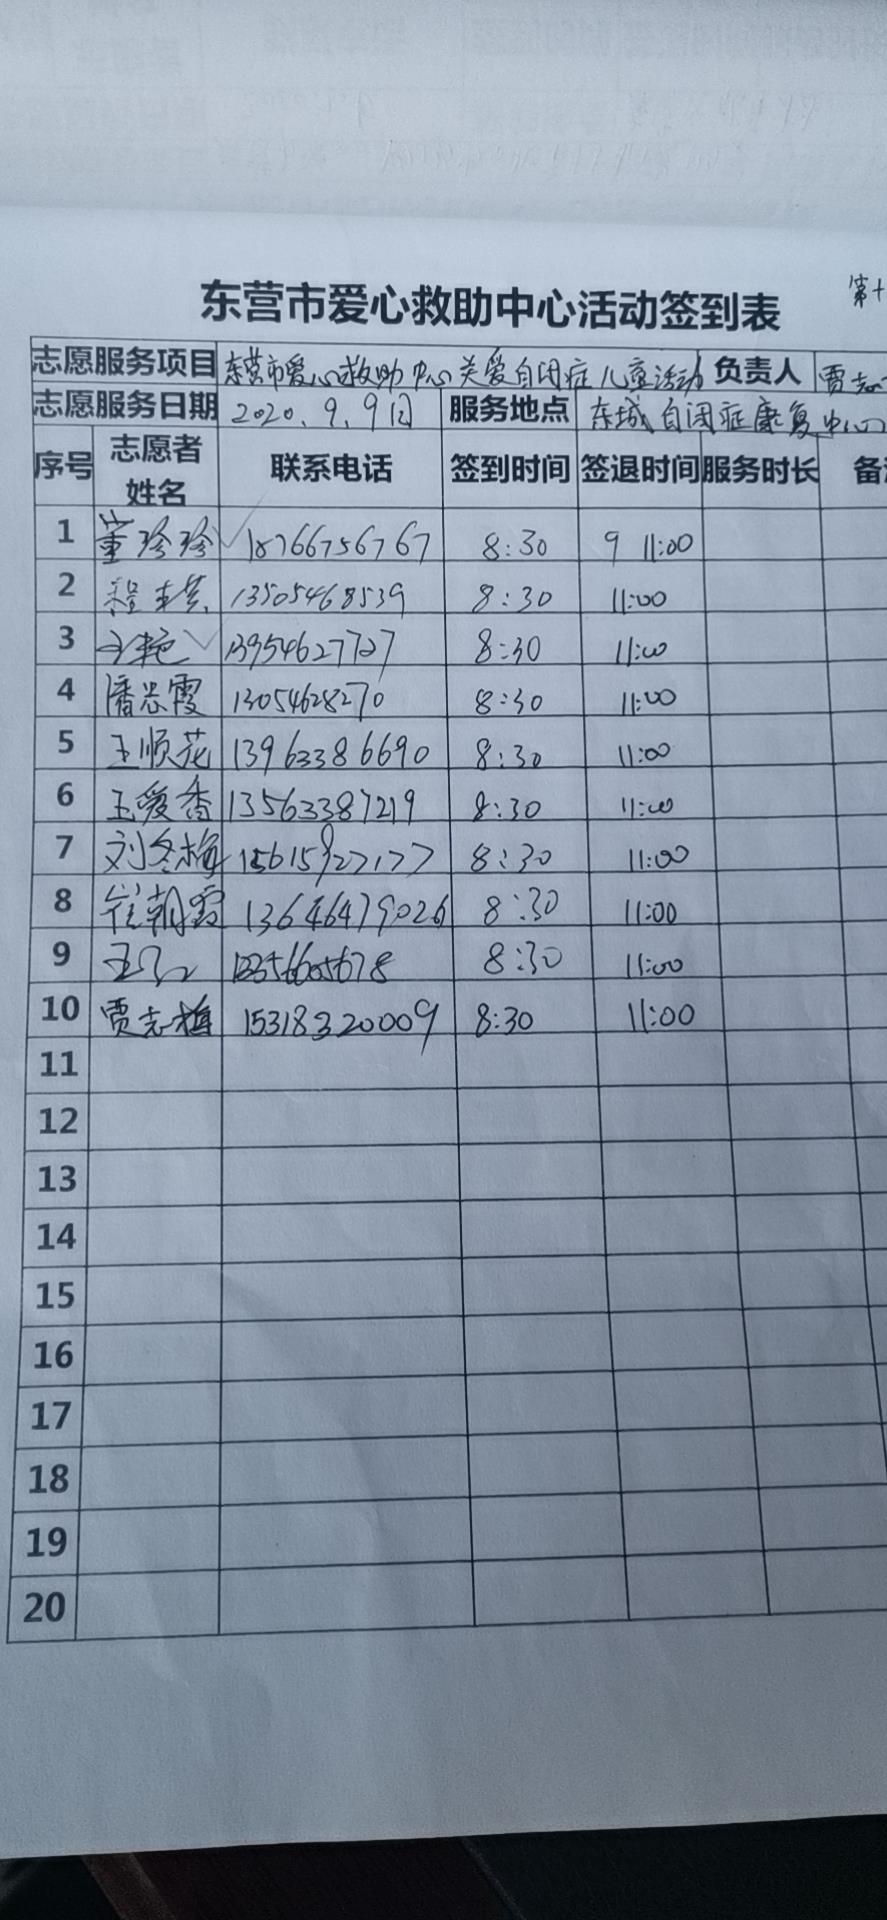 第十
东营市爱心救助中心活动签到表
志愿服务项目 东营市爱心救助中心关爱自闭症儿童活动 负责人 贾志
志愿服务日期 2020.9.9日 服务地点 东城自闭症康复中心
序号 志愿者姓名 联系电话 签到时间 签退时间 服务时长 备
1 董珍珍 18766756767 8:30 9 11:00
2 13505468539 8:30 11:00
3 王艳 13954627727 8:30 11:00
4 潘岩霞 13054628270 8:30 11:00
5 王顺花 13963386690 8:30 11:00
6 王爱香 13563387219 8:30 11:00
7 刘冬梅 15615927177 8:30 11:00
8 崔朝霞 13646479026 8:30 11:00
9 13356605678 8:30 11:00
10 贾志梅 15318320009 8:30 11:00
11
12
13
14
15
16
17
18
19
20